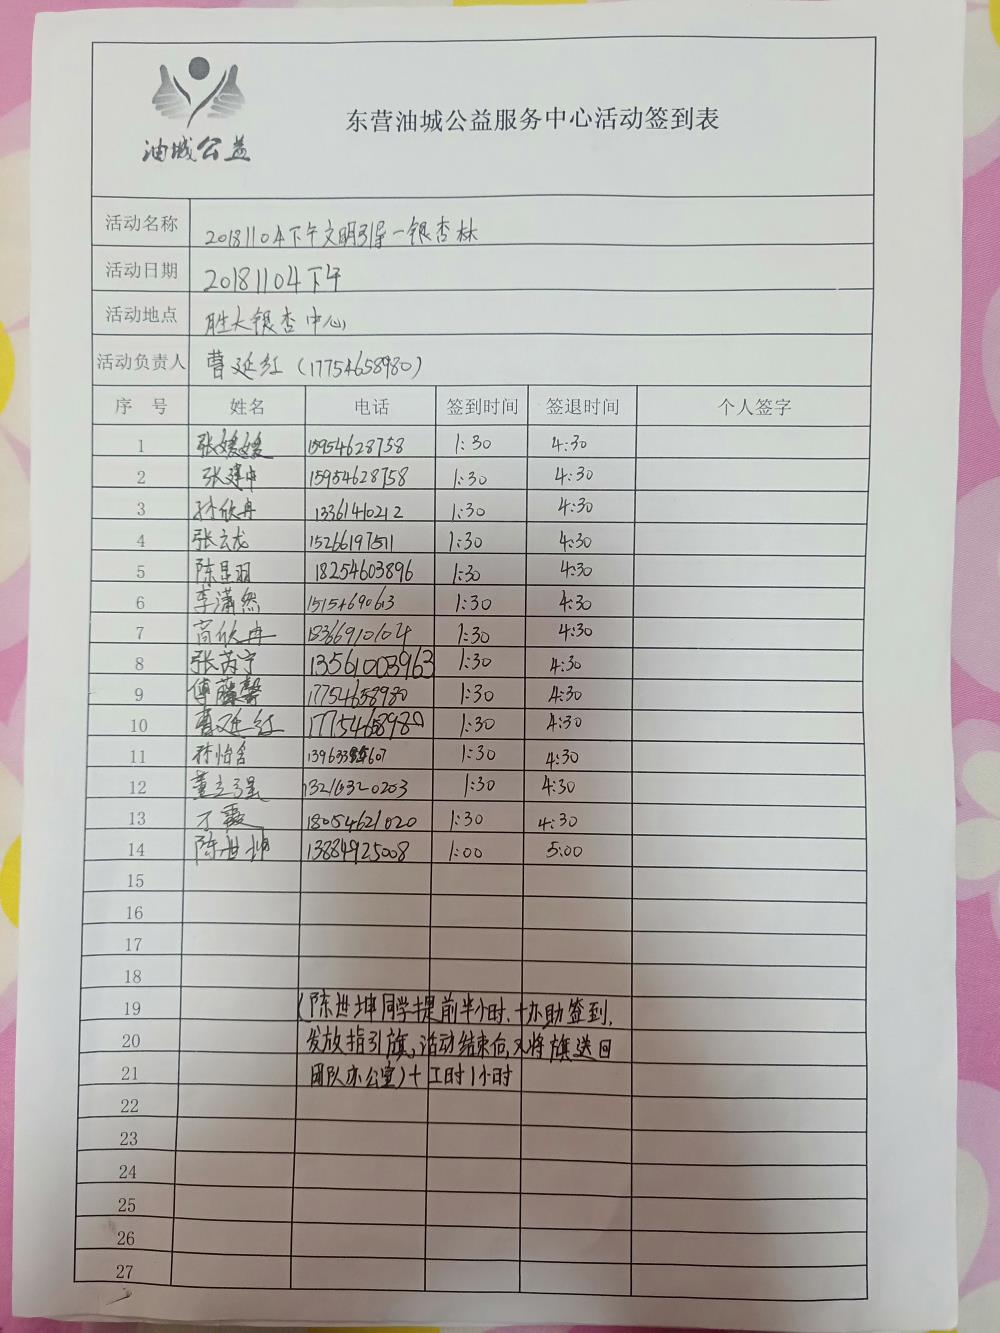 油城公益
东营油城公益服务中心活动签到表
活动名称 20181104下午文明引导一银杏林
活动日期 20181104下午
活动地点 胜大银杏中心
活动负责人 曹延红（17754658980）
序 号 姓名 电话 签到时间 签退时间 个人签字
1 张媛媛 15954628758 1:30 4:30
2 张建中 15954628758 1:30 4:30
3 孙欣冉 13361410212 1:30 4:30
4 张云龙 15266197511 1:30 4:30
5 陈昱羽 18254603896 1:30 4:30
6 李潇然 15154690613 1:30 4:30
7 高欣冉 1:30 4:30
8 张芮宁 13561003963 1:30 4:30
9 傅藤馨 17754658980 1:30 4:30
10 曹延红 17754658980 1:30 4:30
11 孙怡含 1:30 4:30
12 董立强 13216320203 1:30 4:30
13 丁霞 18054621020 1:30 4:30
14 陈世坤 13884925008 1:00 5:00
15
16
17
18
19 （陈世坤同学提前半小时，协助签到，
20 发放指引旗，活动结束后，又将旗送回
21 团队办公室）＋工时1小时
22
23
24
25
26
27